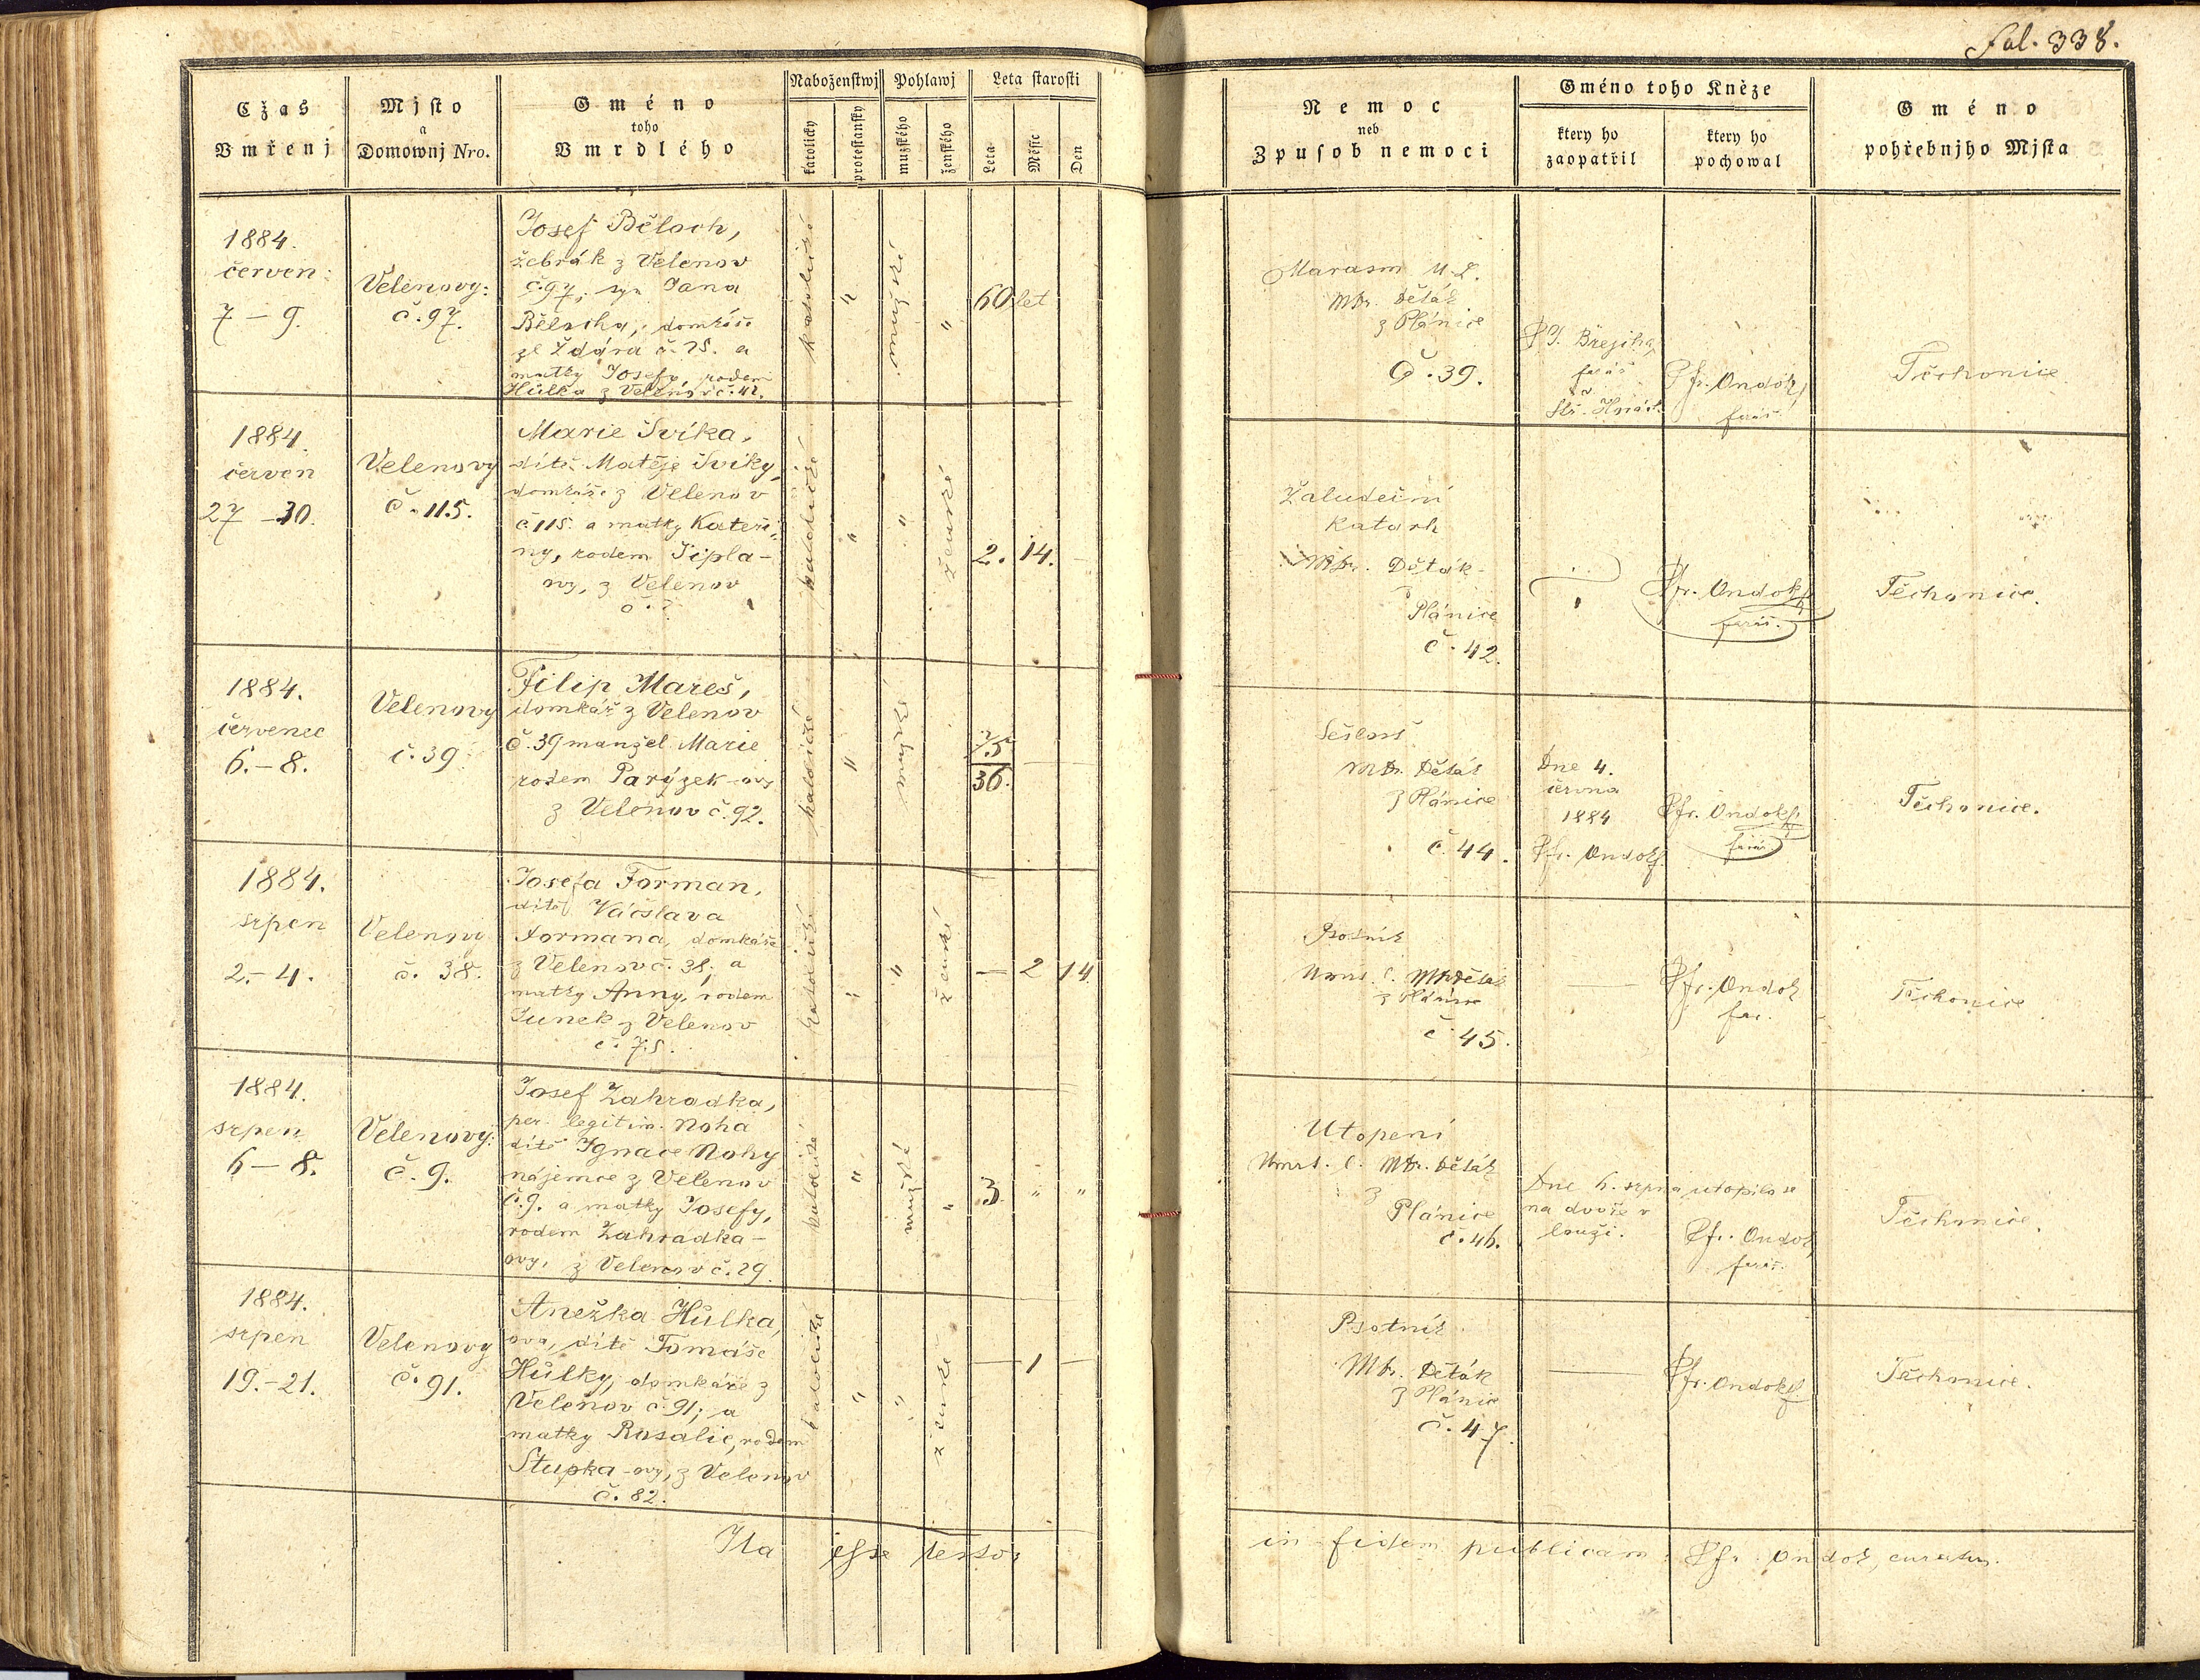 Fol. 338.
Cžas
Vmřenj
Mjsto
a
Domownj Nro.
Gméno
toho
Vmrdlého
Naboženstwj
katolicky
protestansky
Pohlawj
mužského
ženského
Leta starosti
Leta
Měsíc
Den
Nemoc
neb
Zpusob nemoci
Gméno toho Kněze
ktery ho
zaopatřil
ktery ho
pochowal
Gméno
pohřebnjho Mjsta
1884.
červen:
7 – 9.
Velenovy:
č. 97.
Josef Běloch,
žebrák z Velenov
č. 97; syn Jana
domkáře
ze Ždára č. 25. a
matky Josefy, rodem
Hůlka z Velenov č. 42.
katolické
"
mužské
"
60 let
Marasm
MDr. Děták
z Plánice
Č. 39.
farář
Fr. Ondok,
farář.
Těchonice
1884.
červen
27 – 30.
Velenovy
č. 115.
Marie Švíka,
dítě Matěje Švíky,
domkáře z Velenov
č 115. a matky Kateři-
ny, rodem Šipla-
ovy, z Velenov
č. ?
katolické
"
"
ženské
2. 14. –
Žaludeční
katarh
MDr. Děták
z
Plánice
č. 42.
Fr. Ondok
farář.
Těchonice.
1884.
červenec
6. – 8.
Velenovy
č. 39
Filip Mareš,
domkář z Velenov
č. 39 manžel Marie
rodem Parýzek-ovy
z Velenov č. 92.
katolické
"
mužské
75
36.
Sešlosť
MDr. Děták
z Plánice
č. 44.
Dne 4.
června
1884
Fr. Ondok
Fr. Ondok
farář
Těchonice.
1884.
srpen
2. – 4.
Velenovy
č. 38.
Josefa Forman,
dítě Váčslava
Formana, domkáře
z Velenov č. 38; a
matky Anny, rodem
Junek z Velenov
č. 75.
katolické
"
"
ženské
– 2 14
Psotník
MDr Děták
z Plánice
č 45.
—
Fr. Ondok
far.
Těchonice
1884.
srpen
6 – 8.
Velenovy:
č. 9.
Josef Zahradka,
per. legitim. Noha
dítě Ignace Nohy
nájemce z Velenov
č. 9. a matky Josefy,
rodem Zahradka-
ovy, z Velenov č. 29.
katolické
"
mužské
"
3. " "
Utopení
MDr. Děták
z
Plánice
č. 46.
Dne 6. srpna utopilo se
na dvoře v
louži.
Fr. Ondok
farář.
Těchonice.
1884.
srpen
19. – 21.
Velenovy
č. 91.
Anežka Hůlka,
ova, dítě Tomáše
Hůlky, domkáře z
Velenov č. 91; a
matky Rosalie, rodem
Stupka-ovy, z Velenov
č. 82.
katolické
"
"
ženské
– 1 –
Psotník
MDr. Děták
z Plánice
č. 47.
—
Fr. Ondok
Těchonice.
Ita esse testor
in fidem publicam: Fr. Ondok, curatus.